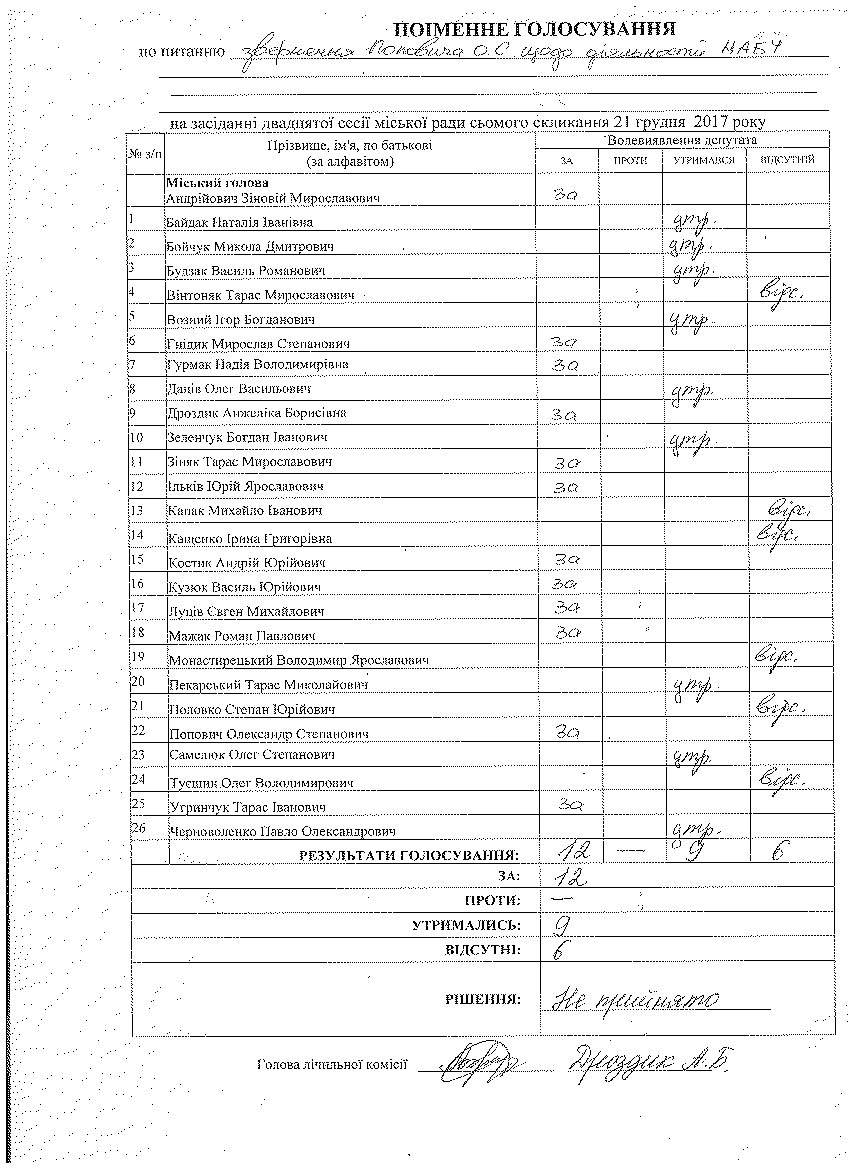 ПОІМЕННЕ ГОЛОСУВАННЯ
по питанню звернення Поповича О.С щодо діяльності НАБУ
на засіданні двадцятої сесії міської ради сьомого скликання 21 грудня 2017 року
№ з/п Прізвище, ім'я, по батькові (за алфавітом) Волевиявлення депутата
ЗА ПРОТИ УТРИМАВСЯ ВІДСУТНІЙ
Міський голова
Андрійович Зіновій Мирославович за
1 Байдак Наталія Іванівна утр.
2 Бойчук Микола Дмитрович утр.
3 Будзак Василь Романович утр.
4 Вінтоняк Тарас Мирославович відс.
5 Возний Ігор Богданович утр.
6 Гнідик Мирослав Степанович за
7 Гурмак Надія Володимирівна за
8 Даців Олег Васильович утр.
9 Дроздик Анжеліка Борисівна за
10 Зеленчук Богдан Іванович утр.
11 Зіняк Тарас Мирославович за
12 Ільків Юрій Ярославович за
13 Капак Михайло Іванович відс.
14 Кащенко Ірина Григорівна відс.
15 Костик Андрій Юрійович за
16 Кузюк Василь Юрійович за
17 Луців Євген Михайлович за
18 Мажак Роман Павлович за
19 Монастирецький Володимир Ярославович відс.
20 Пекарський Тарас Миколайович утр.
21 Половко Степан Юрійович відс.
22 Попович Олександр Степанович за
23 Самелюк Олег Степанович утр.
24 Туєшин Олег Володимирович відс.
25 Угринчук Тарас Іванович за
26 Черноволенко Павло Олександрович утр.
РЕЗУЛЬТАТИ ГОЛОСУВАННЯ: 12 — 9 6
ЗА: 12
ПРОТИ: —
УТРИМАЛИСЬ: 9
ВІДСУТНІ: 6
РІШЕННЯ: Не прийнято
Голова лічильної комісії Дроздик А.Б.